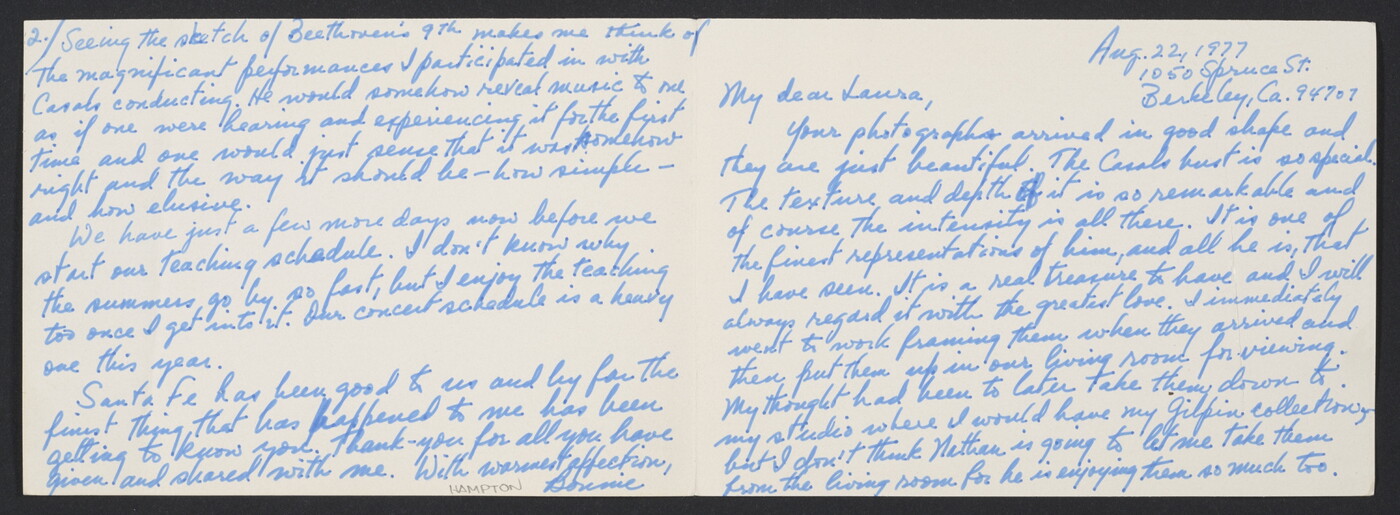 Aug. 22, 1977
1050 Spruce St.
Berkeley, Ca. 94707
My dear Laura,
Your photographs arrived in good shape and
they are just beautiful. The Casals bust is so special.
The texture and depth of it is so remarkable and
of course the intensity is all there. It is one of
the finest representations of him, and all he is, that
I have seen. It is a real treasure to have and I will
always regard it with the greatest love. I immediately
went to work framing them when they arrived and
then put them up in our living room for viewing.
My thought had been to later take them down to
my studio where I would have my Gilpin collection,
but I don't think Nathan is going to let me take them
from the living room for he is enjoying them so much too.
2./ Seeing the sketch of Beethoven's 9th makes me think of
the magnificant performances I participated in with
Casals conducting. He would somehow reveal music to one
as if one were hearing and experiencing it for the first
time and one would just sense that it was somehow
right and the way it should be – how simple –
and how elusive.
We have just a few more days now before we
start our teaching schedule. I don't know why
the summers go by so fast, but I enjoy the teaching
too once I get into it. Our concert schedule is a heavy
one this year.
Santa Fe has been good to us and by far the
finest thing that has happened to me has been
getting to know you, thank-you for all you have
given and shared with me. With warmest affection,
Bonnie
HAMPTON